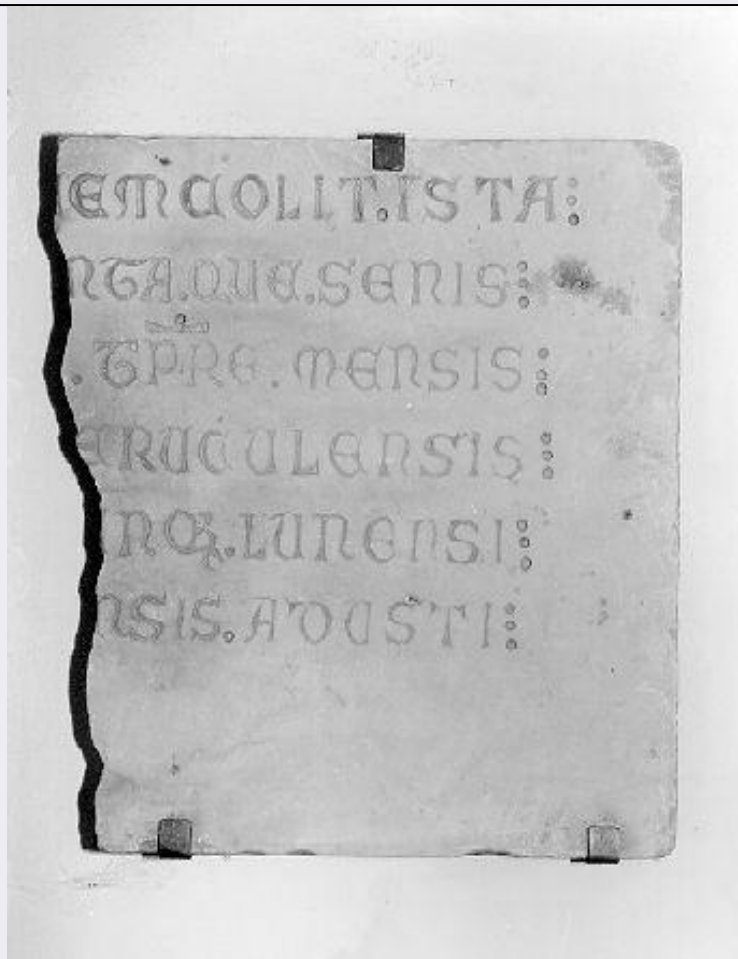 EM COLIT. ISTA⁝
NTA. QUE. SENIS⁝
. TPRE. MENSIS⁝
RUCULENSIS⁝
LUNENSI⁝
NSIS. AVUSTI⁝